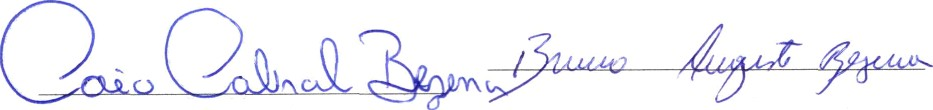 Caio Cabral Bezerra Bruno Augusto Bezerra